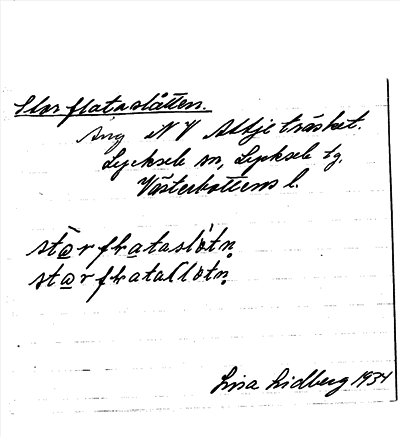 Storflataslåtten.
äng NV Abbjeträsket.
Lycksele sn, Lycksele tg.
Västerbottens l.
stɑ̄rfłataslòtn̥
stɑrfłataſlòtn̥
Lisa Lidberg 1934